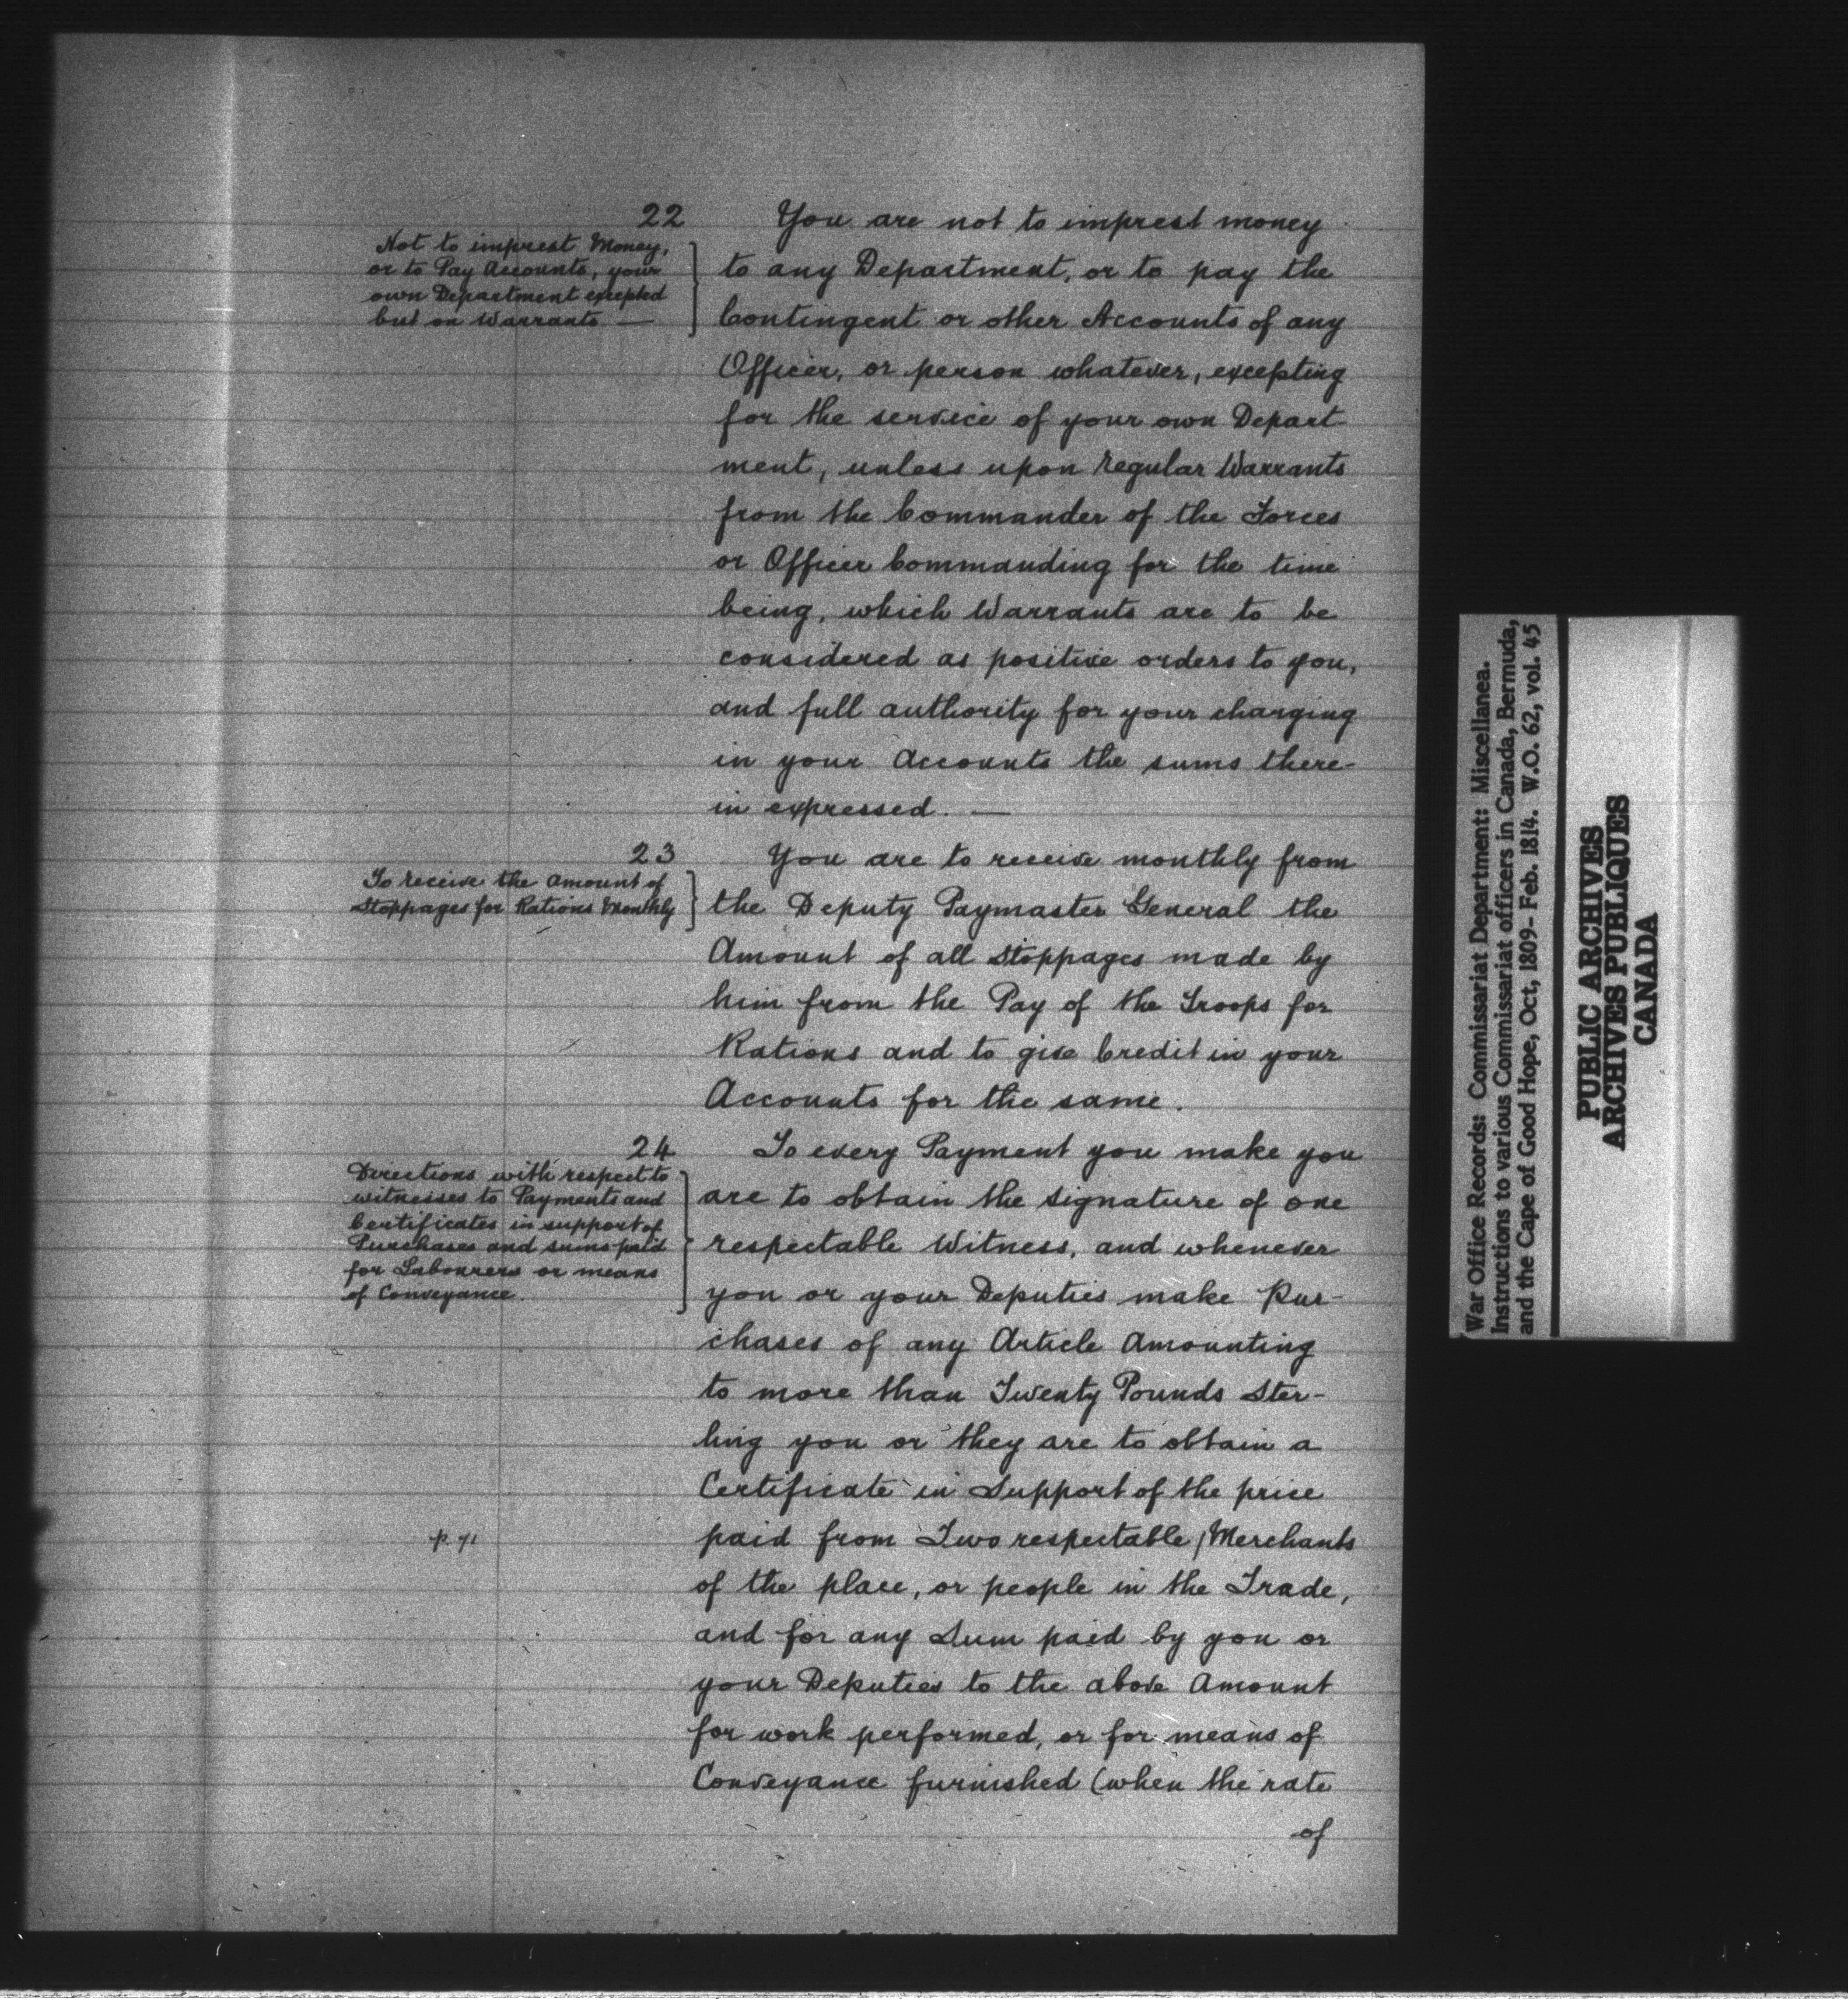 22
Not to imprest Money,
or to Pay Accounts, your
own Department excepted
but on Warrants —
You are not to imprest money
to any Department, or to pay the
Contingent or other Accounts of any
Officer, or person whatever, excepting
for the service of your own Depart-
ment, unless upon regular Warrants
from the Commander of the Forces
or Officer Commanding for the time
being, which Warrants are to be
considered as positive orders to you,
and full authority for your charging
in your Accounts the sums there-
in expressed. —
23
To receive the amount of
Stoppages for Rations Monthly
You are to receive monthly from
the Deputy Paymaster General the
Amount of all Stoppages made by
him from the Pay of the Troops for
Rations and to give Credit in your
Accounts for the same.
24
Directions with respect to
witnesses to Payments and
Certificates in support of
Purchases and sums paid
for Labourers or means
of Conveyance.
To every Payment you make you
are to obtain the signature of one
respectable Witness, and whenever
you or your Deputies make Pur-
chases of any Article Amounting
to more than Twenty Pounds Ster-
ling you or they are to obtain a
Certificate in Support of the price
p. 71
paid from Two respectable / Merchants
of the place, or people in the Trade,
and for any Sum paid by you or
your Deputies to the above Amount
for work performed, or for means of
Conveyance furnished (when the rate
of
War Office Records: Commissariat Department: Miscellanea.
Instructions to various Commissariat officers in Canada, Bermuda,
and the Cape of Good Hope, Oct, 1809- Feb. 1814. W.O. 62, vol. 45
PUBLIC ARCHIVES
ARCHIVES PUBLIQUES
CANADA